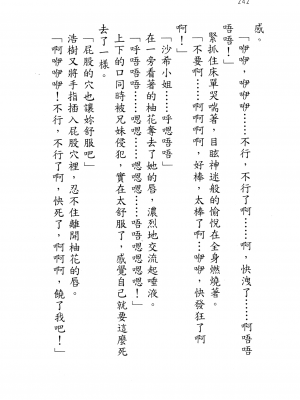 242
感。
「咿咿,咿咿咿……不行,不行了啊……啊,快洩了……啊唔唔
唔唔!」
緊抓住床單哭喘著,目眩神迷般的愉悅在全身燃燒著。
「不要啊……啊啊啊啊,好棒,太棒了啊…咿咿,快發狂了啊
啊!」
「沙希小姐……呼嗯唔唔」
在一旁看著的柚花奪去了她的唇,濃烈地交流起唾液。
「呼唔唔唔……嗯嗯……嗯唔唔嗯嗯嗯!」
上下的口同時被兄妹侵犯,實在太舒服了,感覺自己就要這麼死
去了一樣。
「屁股的穴也讓妳舒服吧」
浩樹又將手指插入屁股穴裡,忍不住離開柚花的唇。
「啊咿咿咿!不行,不行了啊,快死了,啊啊啊,饒了我吧!」